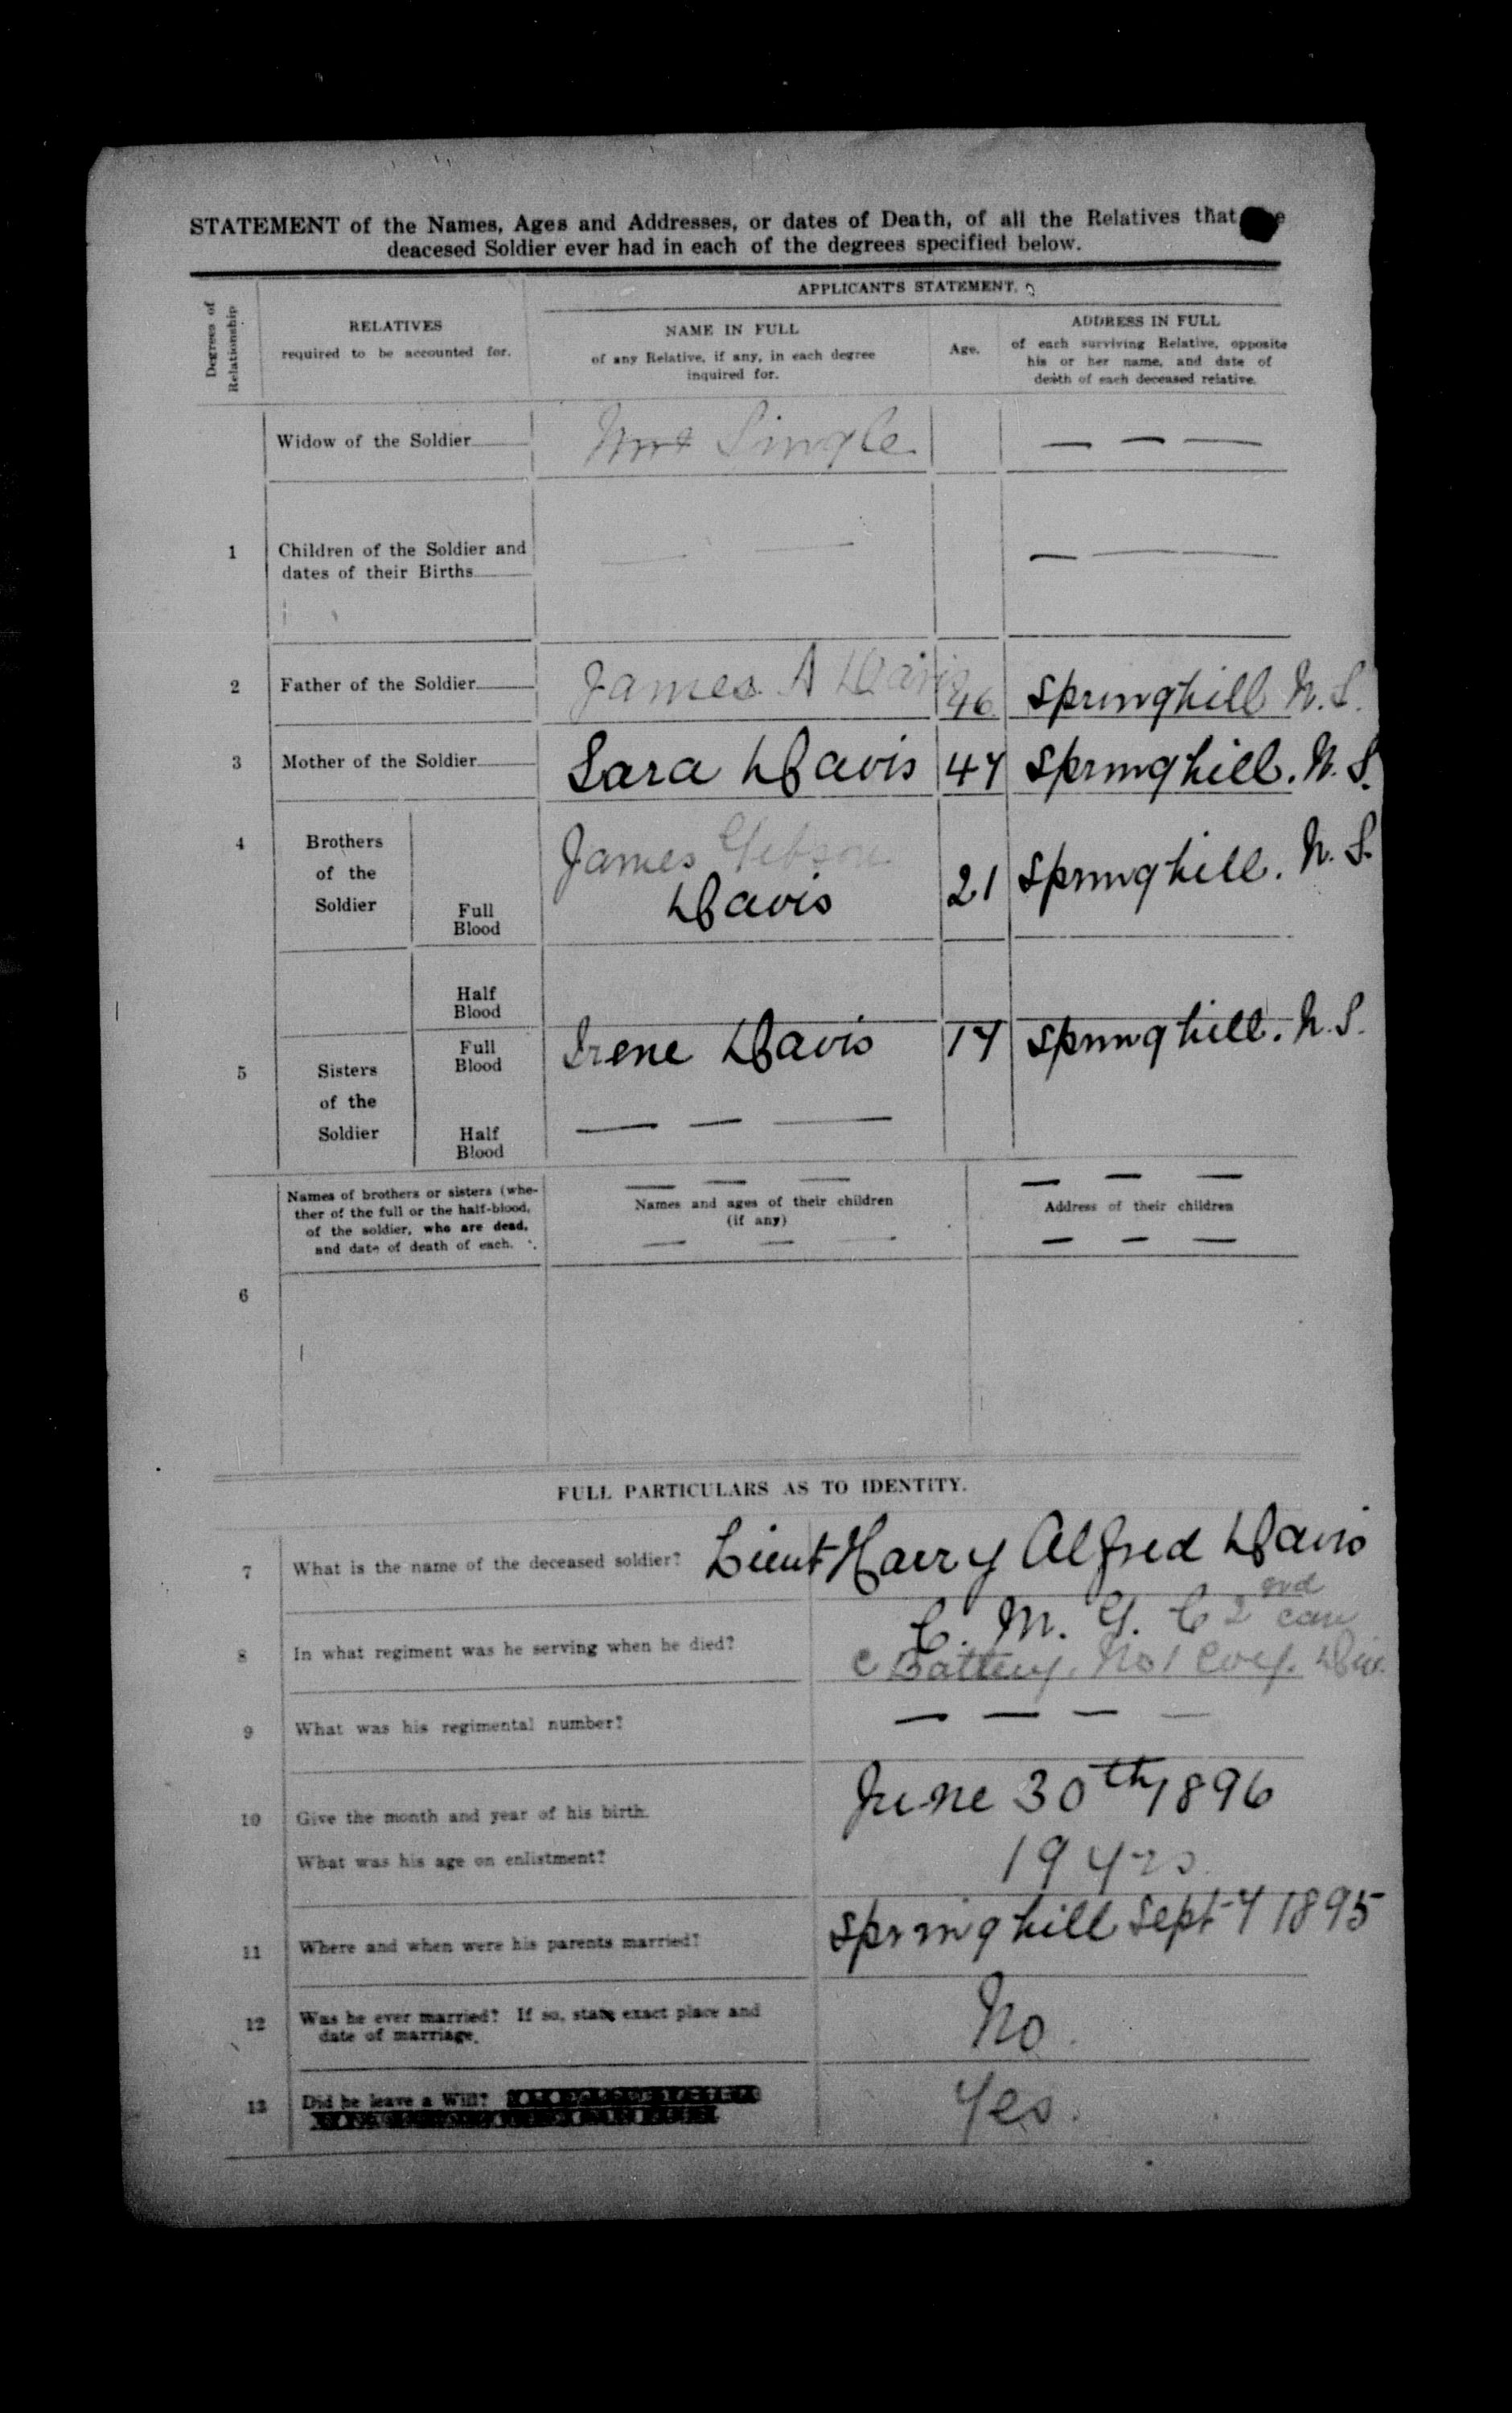 STATEMENT of the Names, Ages and Addresses, or dates of Death, of all the Relatives that
deacesed Soldier ever had in each of the degrees specified below.
Degrees of Relationship
RELATIVES
required to be accounted for.
APPLICANT'S STATEMENT.
NAME IN FULL
of any Relative, if any, in each degree
inquired for.
Age.
ADDRESS IN FULL
of each surviving Relative, opposite
his or her name, and date of
death of each deceased relative.
Widow of the Soldier Single — — —
1 Children of the Soldier and
dates of their Births
2 Father of the Soldier James A Davis 46 Springhill N.S.
3 Mother of the Soldier Sara Davis 47 Springhill. N.S.
4 Brothers
of the
Soldier
Full
Blood
James Gibson
Davis 21 Springhill. N.S.
Half
Blood
5 Sisters
of the
Soldier
Full
Blood
Irene Davis 17 Springhill. N.S.
Half
Blood
— — —
Names of brothers or sisters (whe-
ther of the full or the half-blood,
of the soldier, who are dead,
and date of death of each.
— — —
Names and ages of their children
(if any)
— — —
— — —
Address of their children
— — —
6
FULL PARTICULARS AS TO IDENTITY.
7 What is the name of the deceased soldier? Lieut Harry Alfred Davis
8 In what regiment was he serving when he died? C. M. G. C 2nd Can
C Battery. No 1 Coy. Div.
9 What was his regimental number? — — — —
10 Give the month and year of his birth. June 30th 1896
What was his age on enlistment? 19 yrs
11 Where and when were his parents married? Springhill Sept 4 1895
12 Was he ever married? If so, state exact place and
date of marriage.
No.
13 Did he leave a Will? Yes.